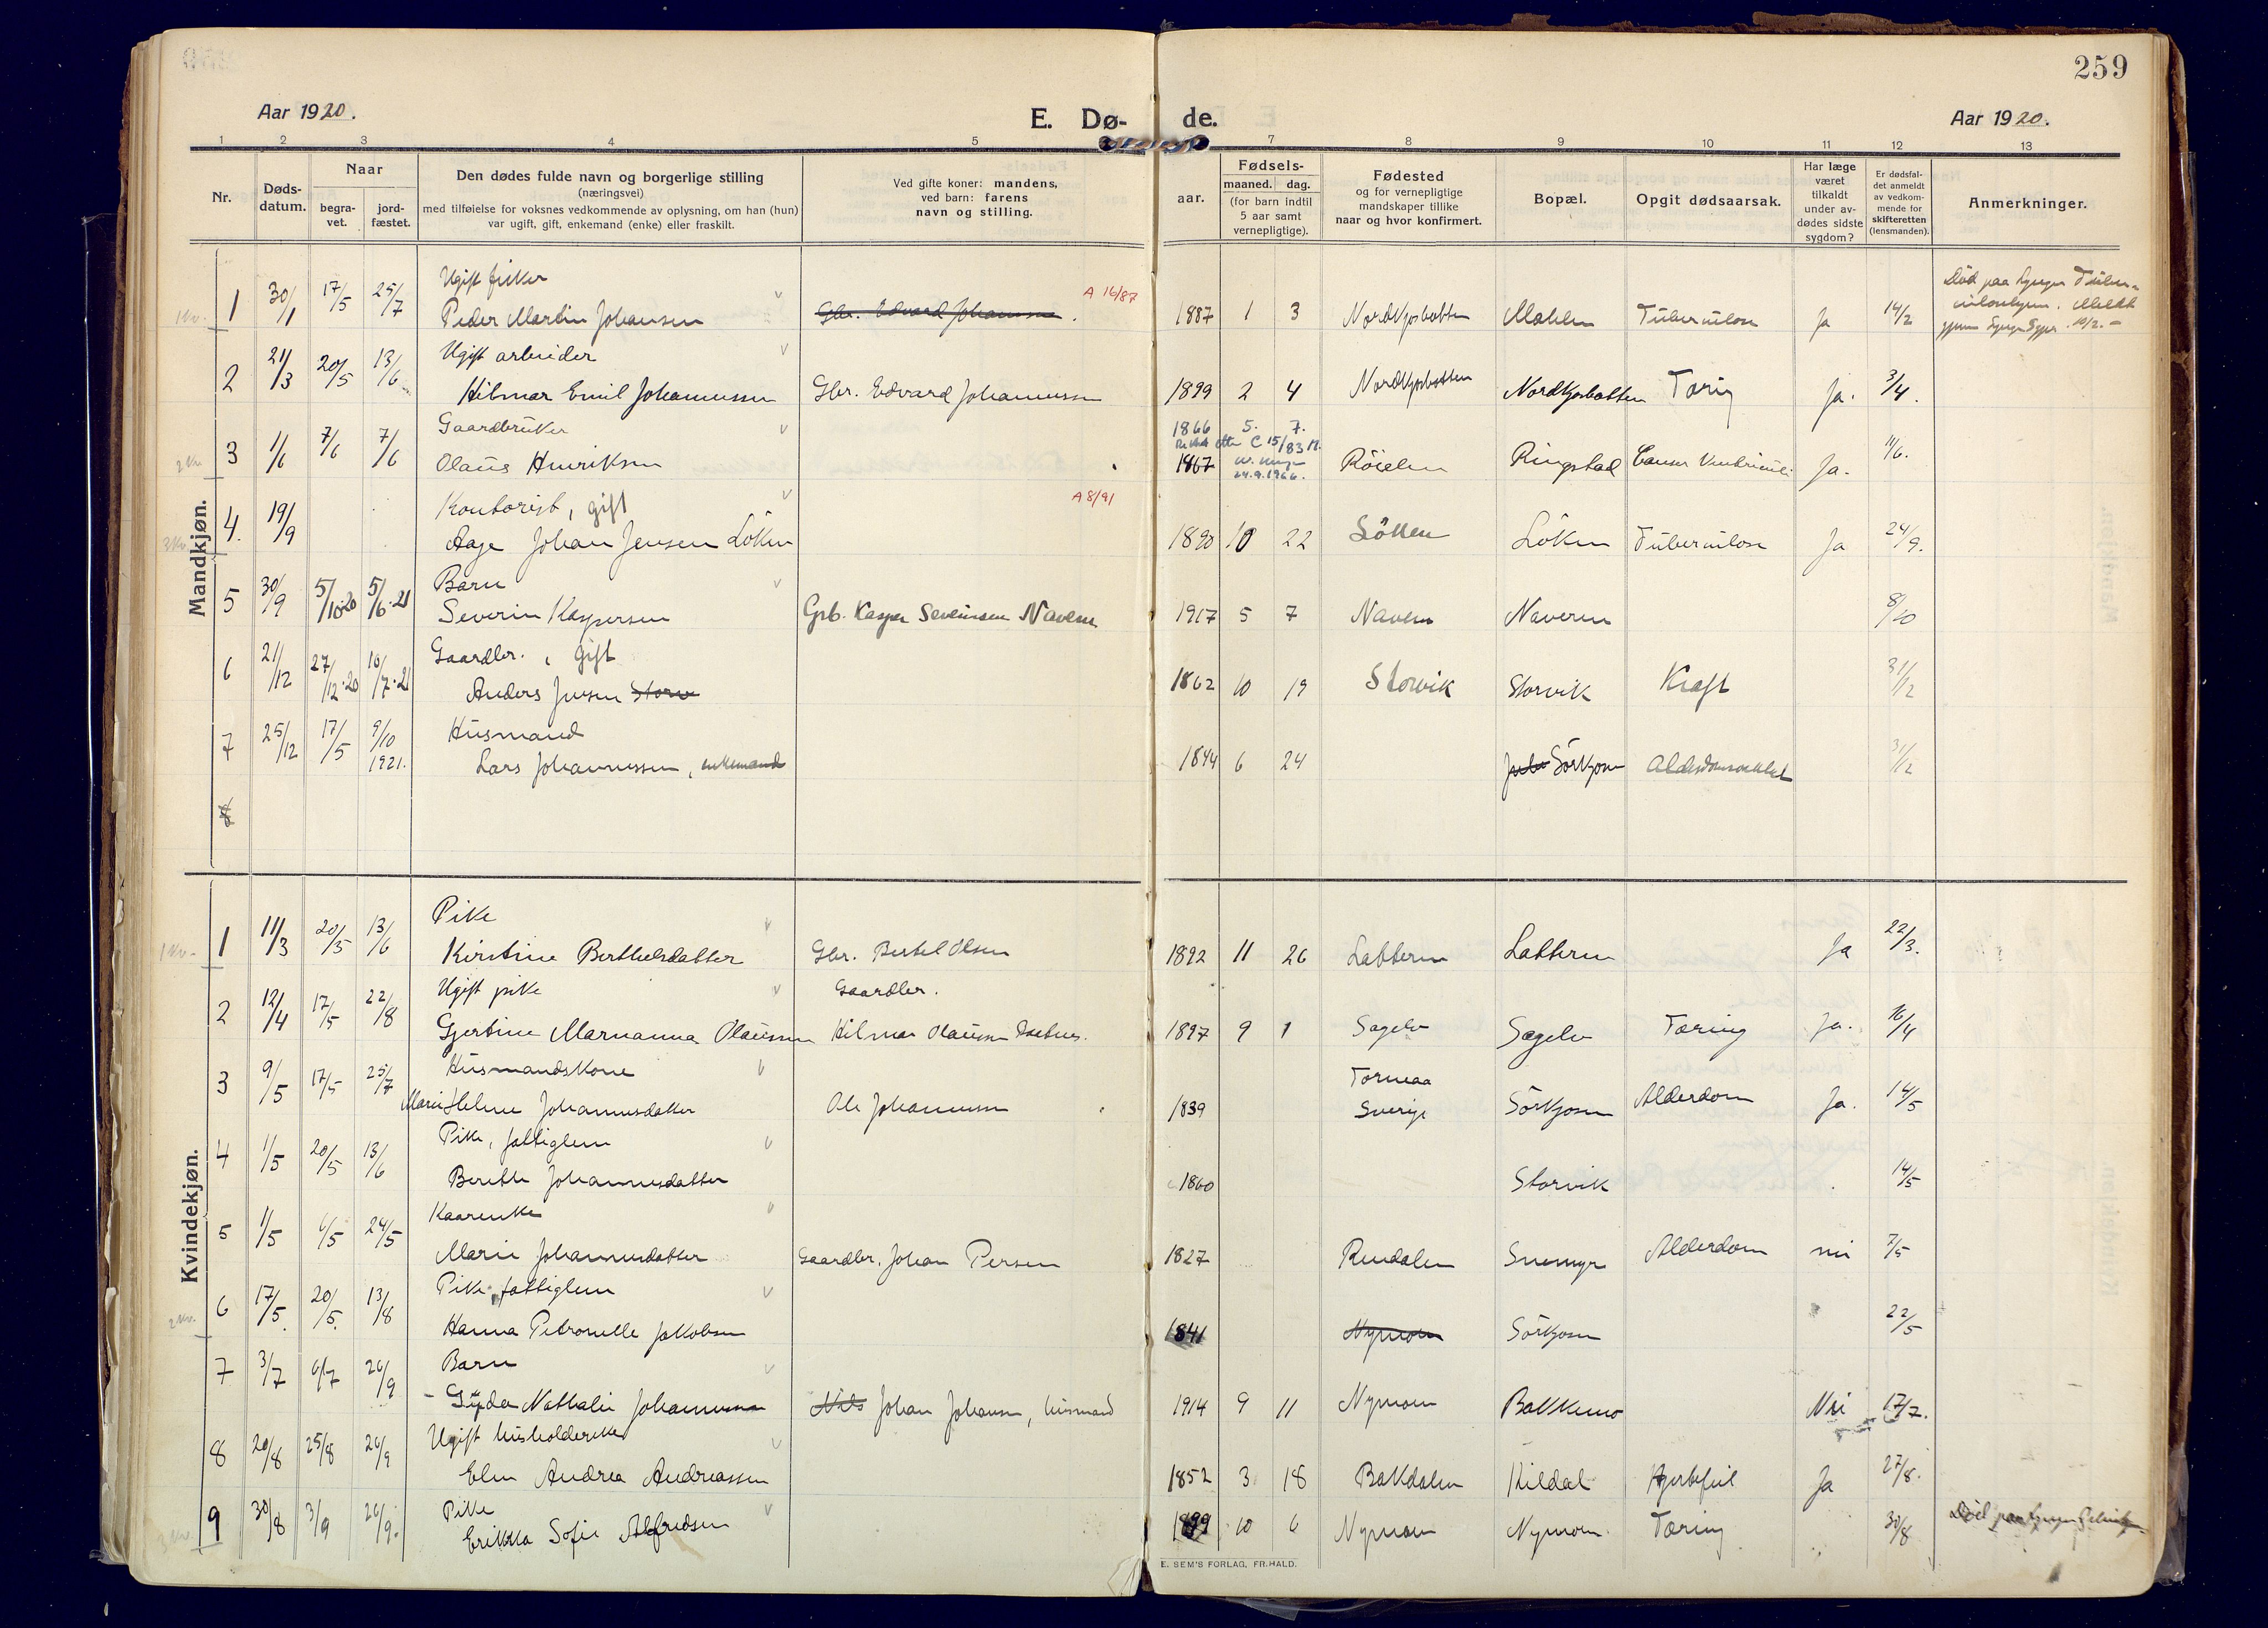 259
Aar 1920.
E. Dø-
de.
Aar 1920.
1 2 3 4 5 7 8 9 10 11 12 13
Nr.
Døds-
datum.
Naar
begra-
vet.
jord-
fæstet.
Den dødes fulde navn og borgerlige stilling
(næringsvei)
med tilføielse for voksnes vedkommende av oplysning, om han (hun)
var ugift, gift, enkemand (enke) eller fraskilt.
Ved gifte koner: mandens,
ved barn: farens
navn og stilling.
Fødsels-
aar.
maaned. dag.
(for barn indtil
5 aar samt
vernepligtige).
Fødested
og for vernepligtige
mandskaper tillike
naar og hvor konfirmert.
Bopæl.
Opgit dødsaarsak.
Har læge
været
tilkaldt
under av-
dødes sidste
sygdom?
Er dødsfal-
det anmeldt
av vedkom-
mende for
skifteretten
(lensmanden).
Anmerkninger.
Mandkjøn.
Ugift fisker
1 30/1 17/5 25/7 Peder Martin Johansen Gbr. Edvard Johannssen. A 16/87 1887 1 3 Nordkjosbotten Mælen Tuberculose Ja 14/2 Død paa Lyngen Tuber-
culosehjem. Meldt
10/2. -
Ugift arbeider
2 21/3 20/5 13/6 Hilmar Emil Johannessen Gbr. Edvard Johannessen 1899 2 4 Nordkjosbotten Nordkjosbotten Tæring Ja. 3/4.
Gaardbruker 1866 5. 7.
C 15/83
3 1/6 7/6 7/6 Olaus Henriksen 1867 Røielen Ringstad Cancer Ventriculi Ja. 11/6.
24.9.1966.
Kontorist, gift A 8/91
4. 19/9 Aage Johan Jensen Løken 1890 10 22 Løken Løken Tuberculose Ja 24/9.
Barn
5 30/9 5/10-20 5/6-21 Severin Kaspersen Grb. Kasper Severinsen Naveren 1917 5 7 Naveren Naveren 8/10
Gaardbr., gift
6 21/12 27/12-20 10/7-21 Anders Jensen Storv 1862 10 19 Storvik Storvik Kræft 31/12
Husmand
7 25/12 17/5 9/10 1921. Lars Johannessen, enkemand 1844 6 24 Sørkjosen Alderdomssvakhet 31/12
8
Kvindekjøn.
Pike
1 11/3 20/5 13/6 Kirstine Berthelsdatter Gbr. Bertel Olsen 1892 11 26 Latteren Latteren Ja 22/3.
Ugift pike Gaardbr.
2 12/4 17/5 22/8 Gjertine Marnanna Olaussen Hilmar Olaussen 1897 9 1 Sagelv Sagelv Tæring Ja. 16/4
Husmandskone Torneaa
3 9/5 17/5 25/7 Marie Helene Johannesdatter Ole Johannessen 1839 Sverige Sørkjosen Alderdom Ja. 14/5
Pike, fattiglem
4 1/5 20/5 13/6 Berithe Johannesdatter 1860 Storvik 14/5
Kaarenke
5 1/5 6/5 24/5 Marie Johannesdatter Gaardbr. Johan Persen 1827 Rendalen Snemyr Alderdom nei 7/5
Pike, fattiglem
6 17/5. 20/5. 13/8 Hanna Petronelle Jakobsen 1841 Nymoen Sørkjosen 22/5
Barn
7 3/7 6/7 26/9 - Gyda Nathalie Johannessen Nils Johan Johansen, husmand 1914 9 11 Nymoen Bakkemo Nei 17/7.
Ugift husholderske
8 20/8 25/8 26/9 Elen Andrea Andreassen 1852 3 18 Bakdalen Kildal Hjertefeil Ja 27/8.
Pike
9 30/8 3/9 26/9. Erikka Sofie Alfredsen 1899 10 6 Nymoen Nymoen. Tæring 30/8 Død paa Lyngen
E. SEM'S FORLAG, FR.HALD.